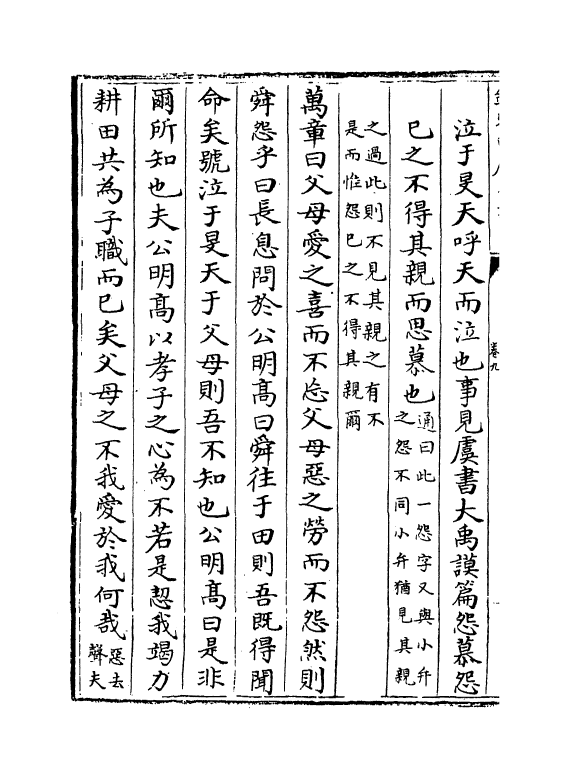 泣于旻天呼天而泣也事見虞書大禹謨篇怨慕怨
己之不得其親而思慕也通曰此一怨字又與小弁
之怨不同小弁猶見其親
之過此則不見其親之有不
是而惟怨已之不得其親爾
萬章曰父母愛之喜而不忘父母惡之勞而不怨然則
舜怨乎曰長息問於公明髙曰舜往于田則吾既得聞
命矣號泣于旻天于父母則吾不知也公明髙曰是非
爾所知也夫公明髙以孝子之心為不若是恝我竭力
耕田共為子職而已矣父母之不我愛於我何哉惡去
聲夫
卷九